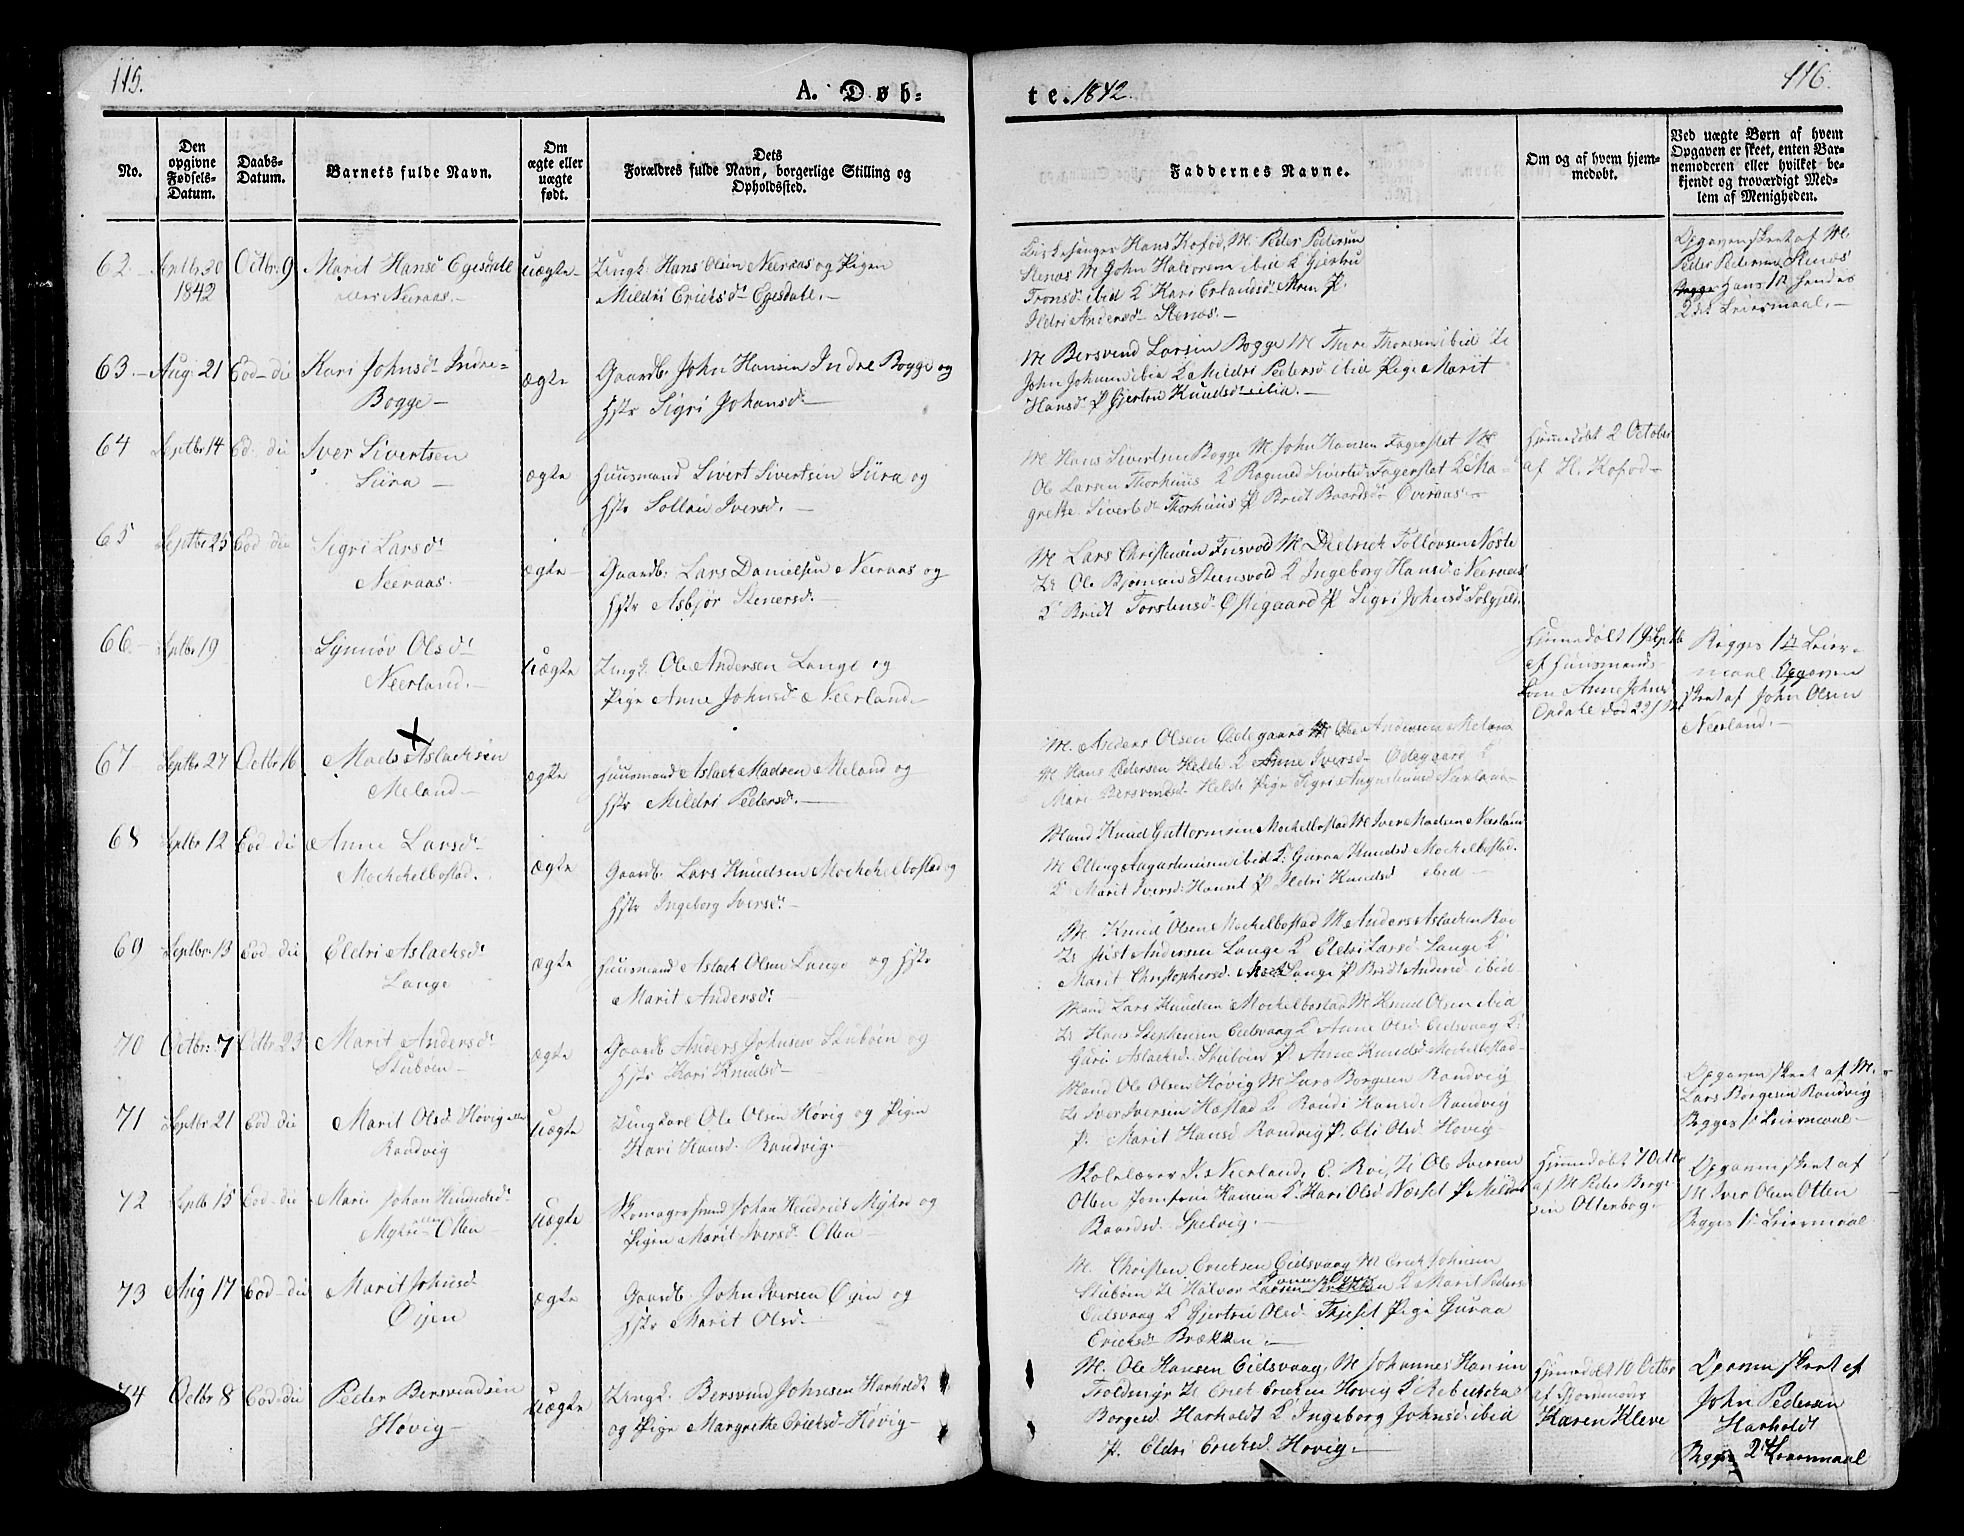 115.
A. Døb-
te. 1842.
116.
No.
Den opgivne Fødsels-Datum.
Daabs-Datum.
Barnets fulde Navn.
Om ægte eller uægte født.
Dets Forældres fulde Navn, borgerlige Stilling og Opholdssted.
Faddernes Navne.
Om og af hvem hjem-medøbt.
Ved uægte Børn af hvem Opgaven er skeet, enten Bar-nemoderen eller hvilket be-kjendt og troværdigt Med-lem af Menigheden.
62. Septbr 30 1842 Octbr. 9 Marit Hansd Egesdale
eller Neeraas.
uægte
Ungk. Hans Olsen Neeraas og Pigen
Mildri Ericksd. Egesdale.
Kirkesanger Hans Kofod, M. Peder Pedersen
Stenæs M John Halvorsen ibid K Gjertru
Tronsd. ibid K Kari Erlandsd. P.
Ildri Andersd. Stenæs.
Opgaven skeet af M.
Peder Pedersen Stenæs
Hans 1ste hendes
2det Leiermaal.
63. Aug. 21 Eod-die Kari Johnsd. Indre-
Bogge
ægte
Gaardb. John Hansen Indre Bogge og
Hstr Sigri Johansd.
M Bersvend Larsen Bogge M Ture Thoresen ibid U
John Johnsen ibid K Mildri Pedersd ibid Pige Marit
Hansd. P Gjertru Knudsd. ibid.
64 Septbr 14 Eod. die Iver Sivertsen
Süra
ægte
Huusmand Sivert Sivertsen Süra og
Hstr Sollau Iversd.
M Hans Sivertsen Bogge M John Hansen Fagerslet M
Ole Larsen Thorhuus K Ragned Sivertsd. Fagerslet K Ma-
grethe Sivertsd. Thorhuus P Brit Baardsd. Overaas.
Hjemmedøbt 2 October
af H. Kofod
65 Septbr 25 Eod die Sigri Larsd.
Neeraas.
ægte
Gaardb. Lars Danielsen Neeraas og
Hstr Asbjør Stenersd.
M Lars Christensen Frisvod M Dietrich Tolløvsen Noste
U Ole Bjørnsen Steensvold K Ingeborg Hansd. Neeraas
K Bridt Torstensd. Østigaard P Sigri Johnsd.
66. Septbr 19 Synnøv Olsd.
Neerland.
uægte
Ungk. Ole Andersen Lange og
Pige Anne Johnsd. Neerland.
Hjemmedøbt 19 Septb
af Huusmands-
Anne Johns
Opdale død 22
Begges 1ste Leier-
maal Opgaven
skeet af John Olsen
Neerland.
67 Septbr 27 Octbr 16 Mads Aslacksen
Meland
ægte
Huusmand Aslack Madsen Meland og
Hstr Mildri Pedersd.
M. Anders Olsen Ødegaard M Ole Andersen Meland
M Hans Pedersen Helde K Anne Iversd. Ødegaard K
Mari Bersvendsd. Helde Pige Sigri Neerland
68 Septbr 12 Eod-die Anne Larsd.
Mockelbostad.
ægte
Gaardb. Lars Knudsen Mockelbostad og
Hstr Ingeborg Iversd.
Mand Knud Guttormsen Mockelbostad M Iver Madsen Neerland
M Elling ibid K. Guraa Knudsd Mockelbostad.
K Marit Iversd. P Ildri Knudsd ibid
69 Septbr 13 Eod-die Eldri Aslacksd.
Lange
ægte
Huusmand Aslack Olsen Lange og Hstr
Marit Andersd.
M. Knud Olsen Mockelbostad M Anders Aslacksen Roe
U. Andersen Lange K Eldri Larsd. Lange K
Marit Christophersd. Lange P Bridt Andersd. ibid
70 Octbr: 7 Octbr 23 Marit Andersd.
Stubøen
ægte
Gaardb Anders Johnsen Stubøen og
Hstr Kari Knudsd.
Mand Lars Knudsen Mockelbostad M Knud Olsen ibid
U Hans Stephensen Eidsvaag K Anne Olsd Eidsvaag K.
Guri Aslacksd. Stubøen P. Anne Knudsd Mockelbostad
71 Septbr 21 Eod-die Marit Olsd Høvig eller
Randvig
uægte
Ungkarl Ole Olsen Høvig og Pigen
Kari Hansd. Randvig.
Mand Ole Olsen Høvig M Lars Børgesen Randvig
U Iver Iversen Hastad K Randi Hansd. Randvig
P. Marit Hansd Randvig P. Eli Olsd. Høvig
Opgaven skeet af M.
Lars Børgesen Randvig
Begges 1ste Leiermaal
72 Septb 15 Eod-die Mari Johan Hendricksd.
Myhre eller Otten
uægte
Skomagersvend Johan Hendrick Myhre og
Pigen Marit Iversd. Otten
Skolelærer Neerland, E. Roe, U Ole Iversen
Otten Jomfrue Hansen K. Kari Olsd Næsset P Mildri
Baardsd. Spelvig.
Hjemmedøbt 7 Octb
af M Peder Børge-
sen Otterbog.
Opgaven skeet af
M Iver Olsen Otten
Begges 1ste Leiermaal
73 Aug 17 Eod-die Marit Johnsd
Øijen
ægte
Gaardb. John Iversen Øyen og
Hstr Marit Olsd.
M. Christen Ericksen Eidsvaag M Erick Johnsen
Stubøen U Halvor Larsen K Marit Pedersd
Eidsvaag K Gjertru Olsd. Tjeset Pige Guraa
Ericksd. Brækken.
74 Octbr 8 Eod-die Peder Bersvendsen
Høvig
uægte
Ungk. Bersvend Johnsen Harholdt
og Pige Margrethe Ericksd. Høvig
M. Ole Hansen Eidsvaag, M Johannes Hansen
Toldmyr U Erick Ericksen Høvig K Rebecka
Børgesd. Harholdt K Ingeborg Johnsd. ibid
P. Eldri Ericksd. Høvig.
Hjemmedøbt 10 Octbr
af Gjormoder
Karen Kleve
Opgaven skeet af
John Pedersen
Harholdt
Begges 2det Leiermaal